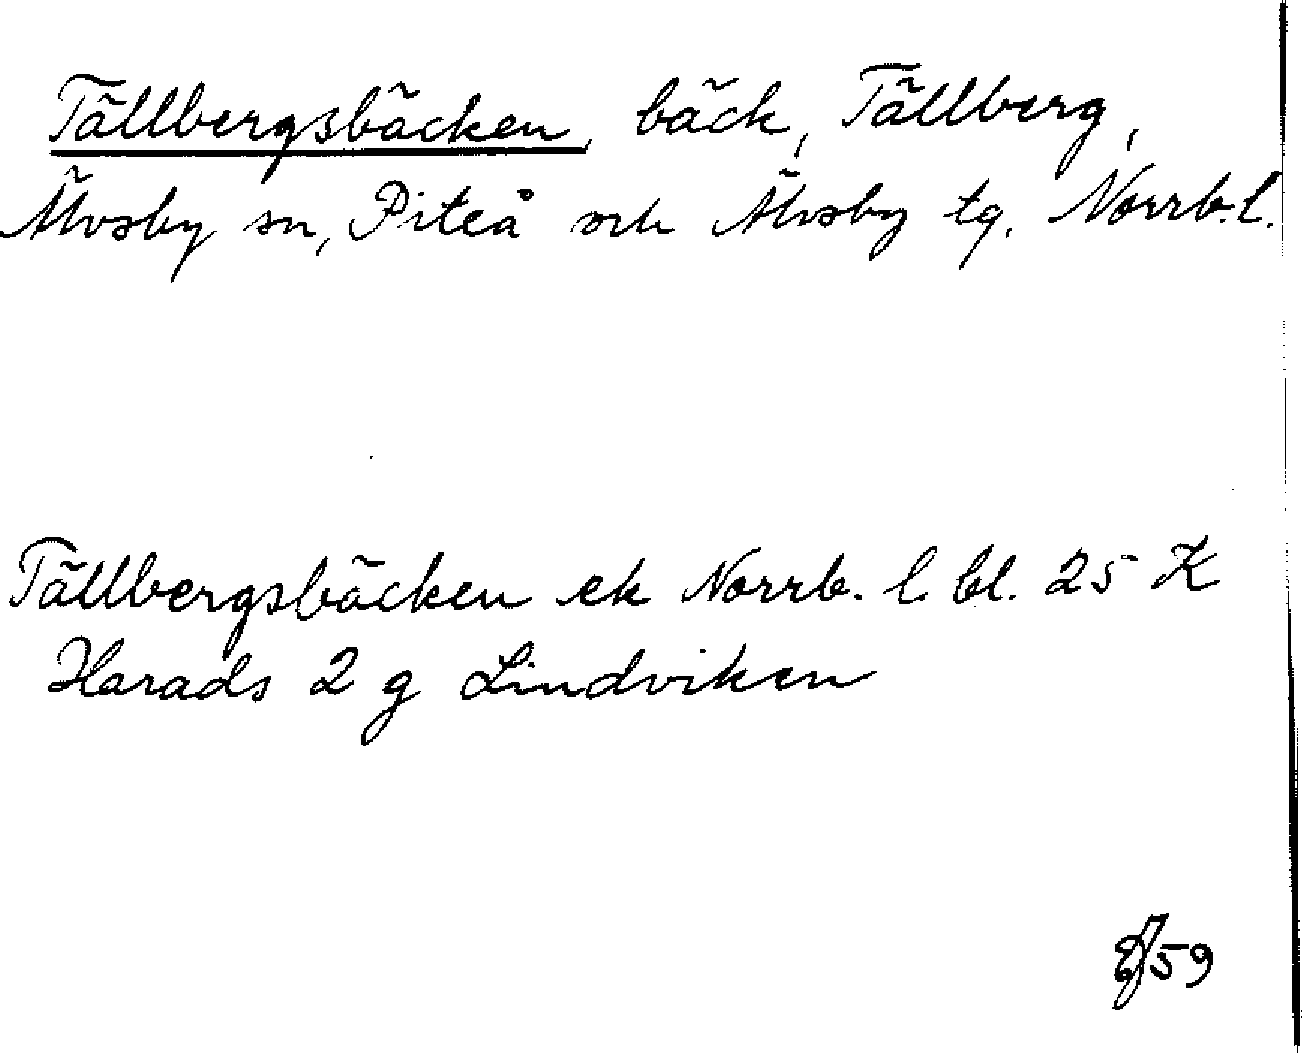 Tällbergsbäcken, bäck, Tällberg,
Älvsby sn, Piteå och Älvsby tg, Norrb.l.
Tällbergsbäcken ek Norrb. l. bl. 25 K
Harads 2 g Lindviken
59